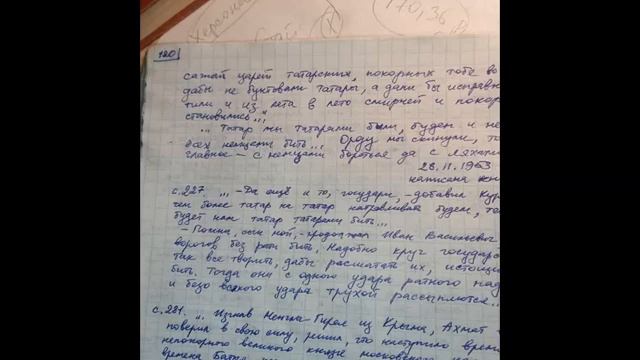 Херсон
170,36
120
сажай царей татарских, покорных тебе во
дабы не бунтовали татары, а дани бы исправно
тили и из лета в лето смирней и покор
становились..."
"... Татар мы татарами били, будем и не
всех немцами бить...! Орду мы скинули, то
главное – с немцами бороться да с ляхами
28.11.1953
написана кни
с.227. "... – Да ещё и то, государь, – добавил Кур
чем более татар на татар натравливать будем, тем
будет нам татар татарами бить...
– Помни, сын мой, – продолжал Иван Васильевич
ворогов без рати бить. Надобно круг государс
так все творить, дабы расшатать их, истощи
бить. Тогда они с одного удара ратного над
и безо всякого удара трухой рассыплются...
с.281. "... Изгнав Менгли-Гирея из Крыма, Ахмат
поверил в свою силу, решил, что наступило врем
непокорного великого князя московского
времена Батыя